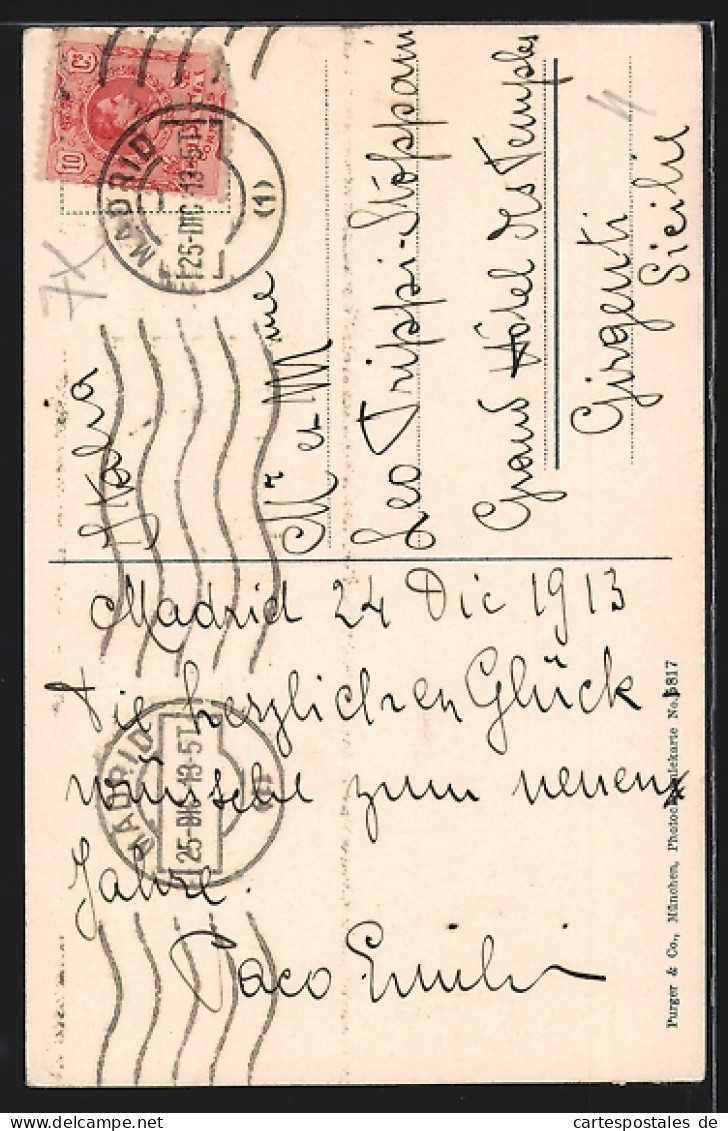 Italia
Mr et Mme
Leo Trippi-Stoppani
Grand Hôtel des Temples
Girgenti
Sicilie
Madrid 24 Dic 1913
Die herzlichen Glück
wünsche zum neuen
Jahre.
Paco Emili
MADRID
25-DIC 13-5T
(1)
MADRID
25-DIC 13-5T
10
Purger & Co., München, Photochromiekarte No. 5817
cartespostales.de